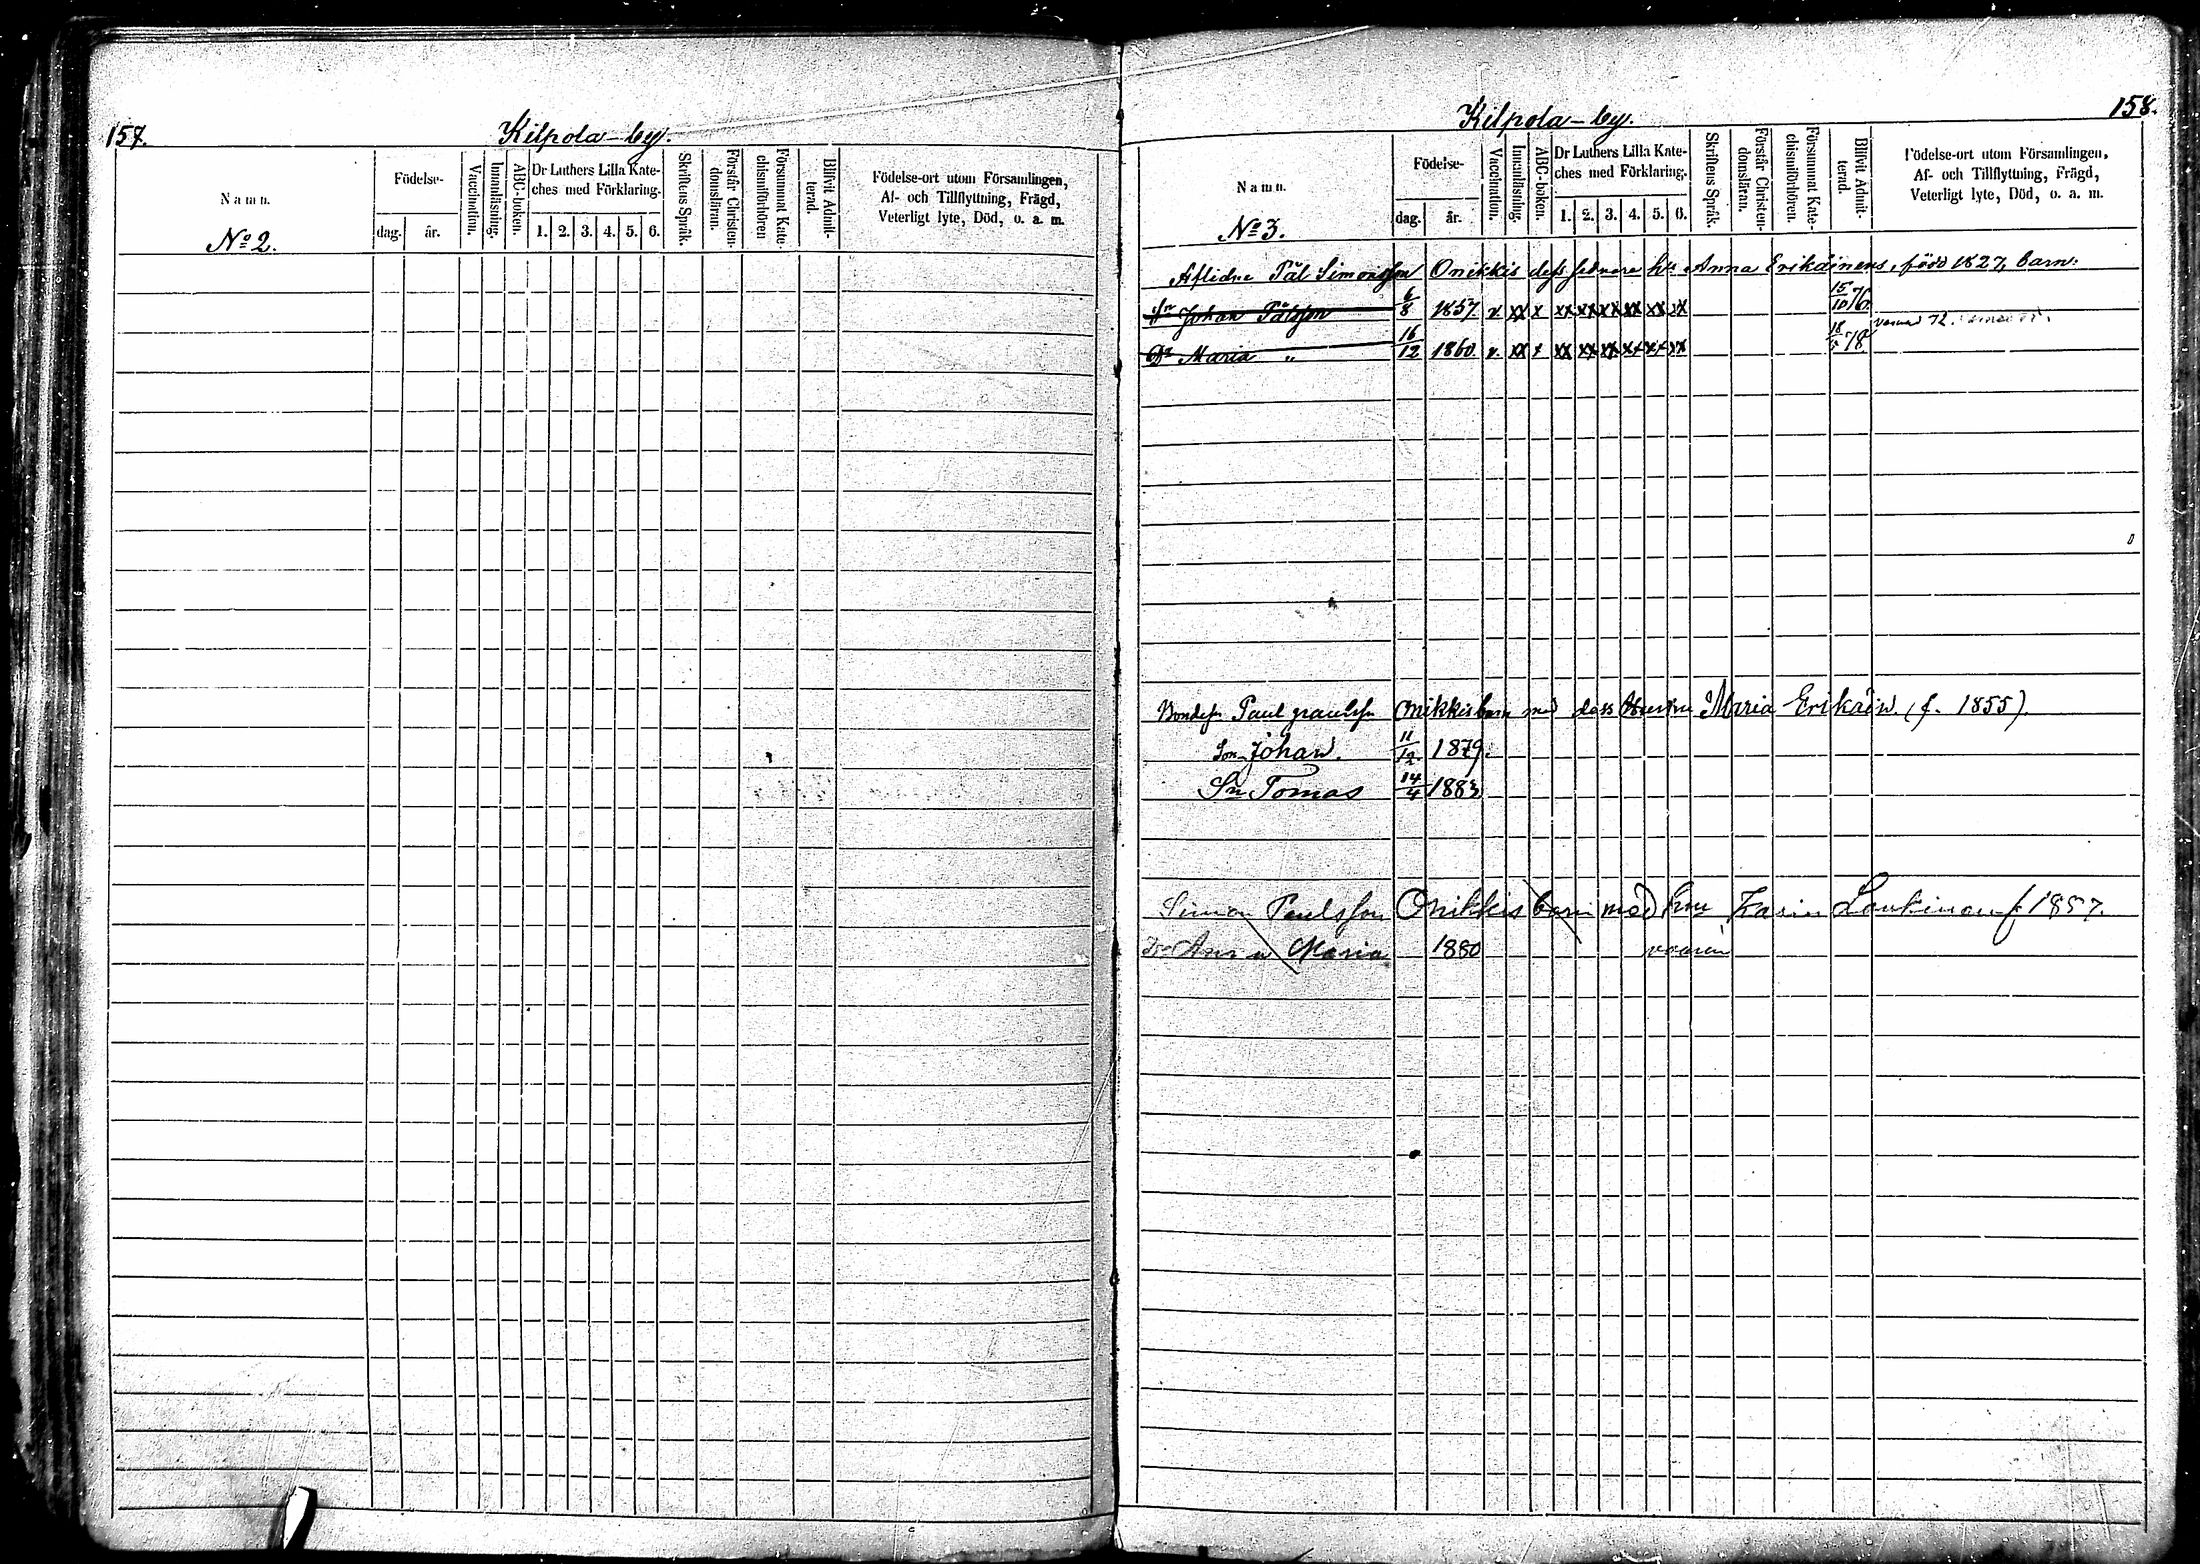 157.
Kilpola-by.
Namn.
Födelse-
dag.
år.
Vaccination.
Innanläsning.
ABC-boken.
Dr Luthers Lilla Kate-
ches med Förklaring.
1. 2. 3. 4. 5. 6.
Skriftens Språk.
Förstår Christen-
domsläran.
Försummat Kate-
chismiförhören
Blifvit Admit-
terad.
Födelse-ort utom Församlingen,
Af- och Tillflyttning, Frägd,
Veterligt lyte, Död, o. a. m.
No 2.
158.
Kilpola-by.
Namn.
Födelse-
dag.
år.
Vaccination.
Innanläsning.
ABC-boken.
Dr Luthers Lilla Kate-
ches med Förklaring.
1. 2. 3. 4. 5. 6.
Skriftens Språk.
Förstår Christen-
domsläran.
Försummat Kate-
chismiförhören.
Blifvit Admit-
terad.
Födelse-ort utom Församlingen,
Af- och Tillflyttning, Frägd,
Veterligt lyte, Död, o. a. m.
No 3.
Aflidne Pål Simonsson Onikkis dess sednare hu Anna Erikäinens, född 1827, barn.
Sn Johan Pålsson 6/8 1857 v xx x xx xx xx xx xx xx 15/10 76.
Dr Maria " 16/12 1860 v. xx x xx xx xx xx xx xx 18/5 78.
Bondes. Paul paulss. Onikkis barn med dess Hustru Maria Erikäin. (f. 1855).
Son Johan. 11/12 1879.
Sn Tomas 14/4 1883
Simon Paulsson Onikkis barn med hru Karin Loukinen f. 1857.
Dr Anna Maria 1880